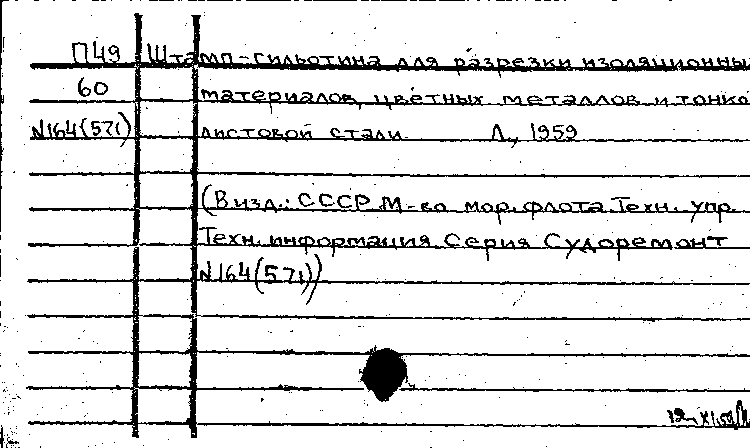 П49 Штамп-гильотина для разрезки изоляционны
60 материалов, цветных металлов и тонко
N164(571) листовой стали. Л., 1959
(В изд.: СССР. М-во мор. флота. Техн. упр.
Техн. информация. Серия Судоремонт
N164(571))